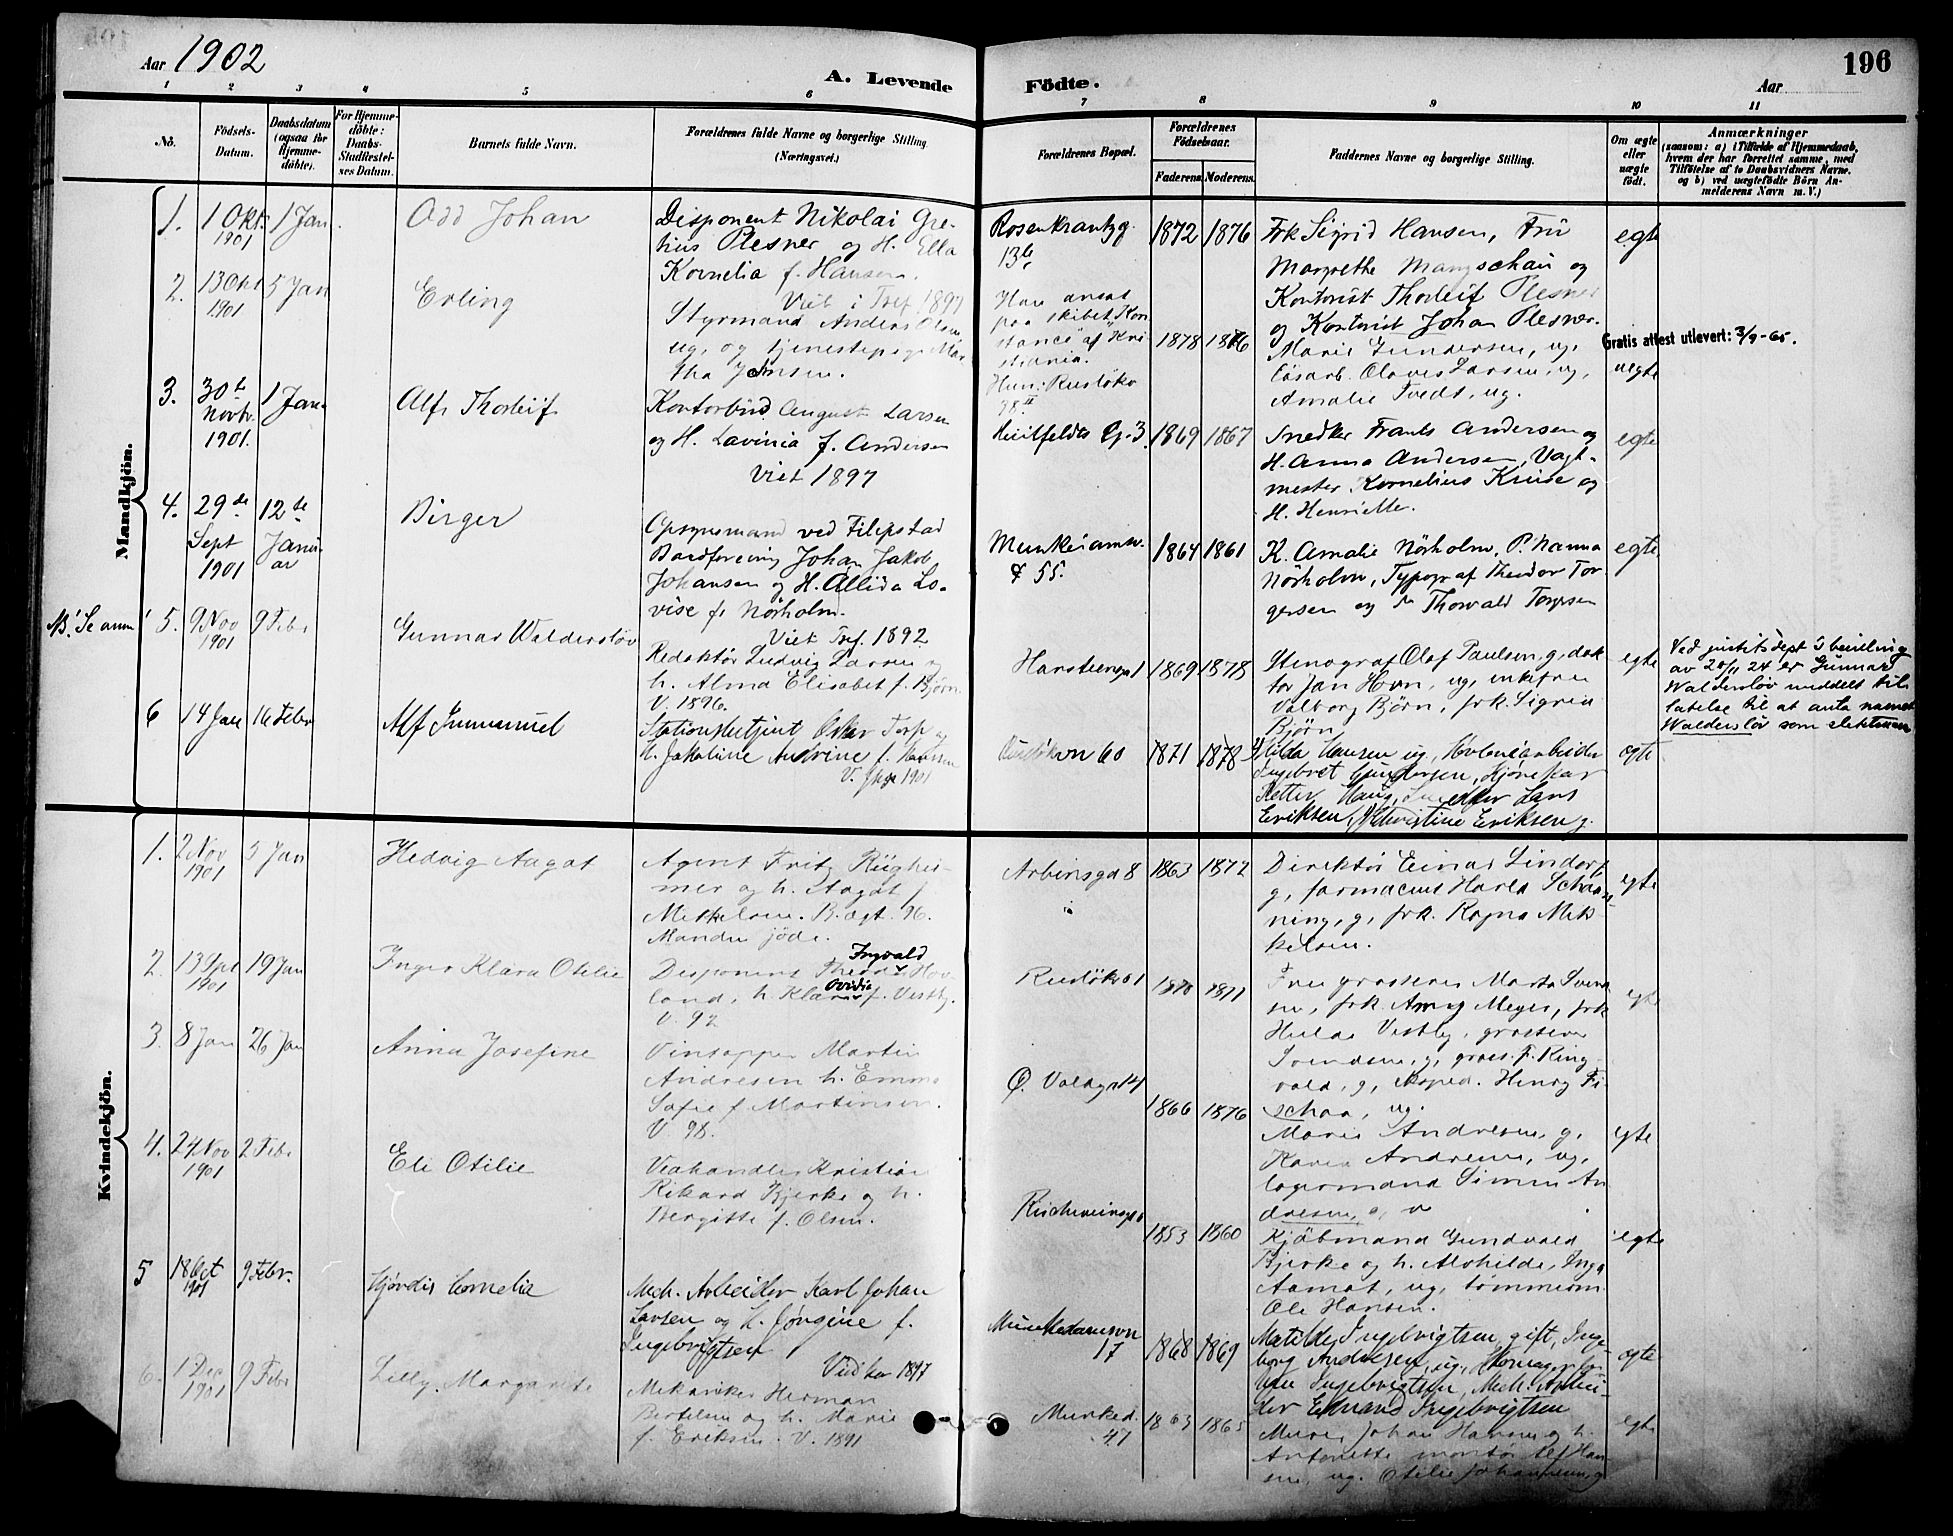 Aar 1902
A. Levende Födte.
Aar
196
1 2 3 4 5 6 7 8 9 10 11
No.
Födsels-Datum.
Daabsdatum (ogsaa for Hjemme-döbte).
For Hjemme-döbte: Daabs-Stadfæstel-ses Datum.
Barnets fulde Navn.
Forældrenes fulde Navne og borgerlige Stilling (Næringsvei.)
Forældrenes Bopæl.
Forældrenes Födselsaar.
Faderens Moderens.
Faddernes Navne og borgerlige Stilling.
Om ægte eller uægte födt.
Anmærkninger
(saasom: a) i Tilfælde af Hjemmedaab,
hvem der har forrettet samme, med
Tilföielse af to Daabsvidners Navne.
og b) ved uægtefödte Börn An-
melderens Navn m. V.)
Mandkjön.
1. 1 Okt. 1901
1 Jan.
Odd Johan
Disponent Nikolai Gre-
tius Plesner og H. Ella
Kornelia f. Hansen.
Viet i Tref. 1897
Rosenkrantzg. 13b
1872 1876
Frk Sigrid Hansen, Frü
Margrethe Mangschau og
Kontorist Thorleif Plesner
og Kontorist Johan Plesner.
egte
2. 13 Okt 1901
5 Jan
Erling
Styrmand Anders Olsen
ug. og tjenestepige Mar-
tha Jensen.
Han ansat
paa skibet "Kon
stance" af Kri
stiania.
Hun: Rusløkv
98 II
1878 1876
Marie Gundersen, ug.
løsarb. Olaves Larsen, ug,
Amalie Tvedt, ug.
uegte
Gratis attest utlevert: 3/9-65.
3. 30te Novbr. 1901.
1 Jan.
Alf Thorleif
Kontorbud August Larsen
og H. Lavinia f. Andersen
Viet 1897
Huitfeldts G. 3
1869 1867
Snedker Frants Andersen og
H. Anna Andersen, Vagt-
mester Kornelius Kruse og
H. Henriette.
egte
4. 29de Sept 1901
12te Januar
Birger
Opsynsmand ved Filipstad
Badforening Johan Jakob
Johansen og H. Allida Lo-
vise f. Nörholm.
Viet Tref. 1892
Munkedamsv. 55.
1864 1861
K. Amalie Nörholm, P. Nanna
Nörholm, Typograf Theodor Tor-
gersen og Thorvald Torgersen
egte
NB. Se anm! 5. 9 Nov 1901
9 Febr
Gunnar Walderslöv
Redaktör Ludvig Larsen og
h. Alma Elisabet f. Björn.
V. 1896.
Hansteensg. 1
1869 1878
Stenograf Olaf Paulsen, g, dok
tor Jan Horn, ug, enkefru
Valborg Björn, frk. Sigrid
Björn
egte
Ved justitsdept's bevilling
av 20/11 24 er Gunnar
Walderslöv meddelt til-
ladelse til at anta navnet
Walderslöv som slektsnavn
6 14 Jan
16 Febr
Alf Immanuel
Stationsbetjent Oskar Torp og
h. Jakobine Andrine f. Hansen
V. 1901
Rusløkvn 60
1871 1878
Hilda Hansen ug,
Ingebret Gundersen,
Petter Haug, Snedker Lars
Eriksen, Kristine Eriksen g.
egte
Kvindekjön.
1. 2 Nov 1901
5 Jan
Hedvig Aagot
Agent Fritz Rüghei-
mer og h. Aagot f.
Mikkelsen. B. ægt. 96.
Manden jöde.
Arbinsgd 8
1863 1872
Direktör Einar Lindorp
g, farmaceut Harld Schaa-
ning, g, frk. Ragna Mik-
kelsen.
egte
2. 13 Spt 1901
19 Jan
Inger Klara Otilie
Disponent Thedor Ingvald Hov-
land, h. Klara Ovidia f. Vestby.
V. 92
Rusløkv 1
1870 1877
Fru grosserer Marta Svend
sen, frk. Anny Meyer, frk
Hulda Vestby, grosserer
Svendsen, g, gross. F. Ring-
vold, g, Exped. Henry Fi
schaa, ug.
egte
3. 8 Jan
26 Jan
Anna Josefine
Vintapper Martin
Andresen h. Emma
Sofie f. Martinsen.
V. 98.
Ø. Voldg. 14
1866 1876
Marie Andresen, g,
Karen Andresen, ug,
lagermand Simen An
dresen,
egte
4. 24 Nov 1901
2 Febr
Eli Otilie
Vedhandler Kristian
Rikard Bjerke og h.
Bergitte f. Olsen.
1853 1860
Kjöbmand Gundvald
Bjerke og h. Alvhilde, Inga
Aamot, ug, tømmerm.
Ole Hansen.
egte
5 18 Oct 1901
9 Febr.
Hjørdis Cornelia
Mek. Arbeider Karl Johan
Larsen og H. Jørgine f.
Ingebrigtsen
Vied 1897
Munkedamsvn 17
1868 1869
Matilde Ingebrigtsen, gift, Inge-
borg Andersen, ug,
Ingebrigtsen, Mek. Arbei-
der Edvard Ingebrigtsen
egte
6. 1 Dec 1901
9 Febr
Lilly Margarete
Mekaniker Herman
Bertelsen og h. Marie
f. Eriksen. V. 1891
Munked. 47
1863 1865
Murer Johan Hansen og h.
Antonette, montör Alf Han-
sen, ug. Otilie Johannesen, g
egte